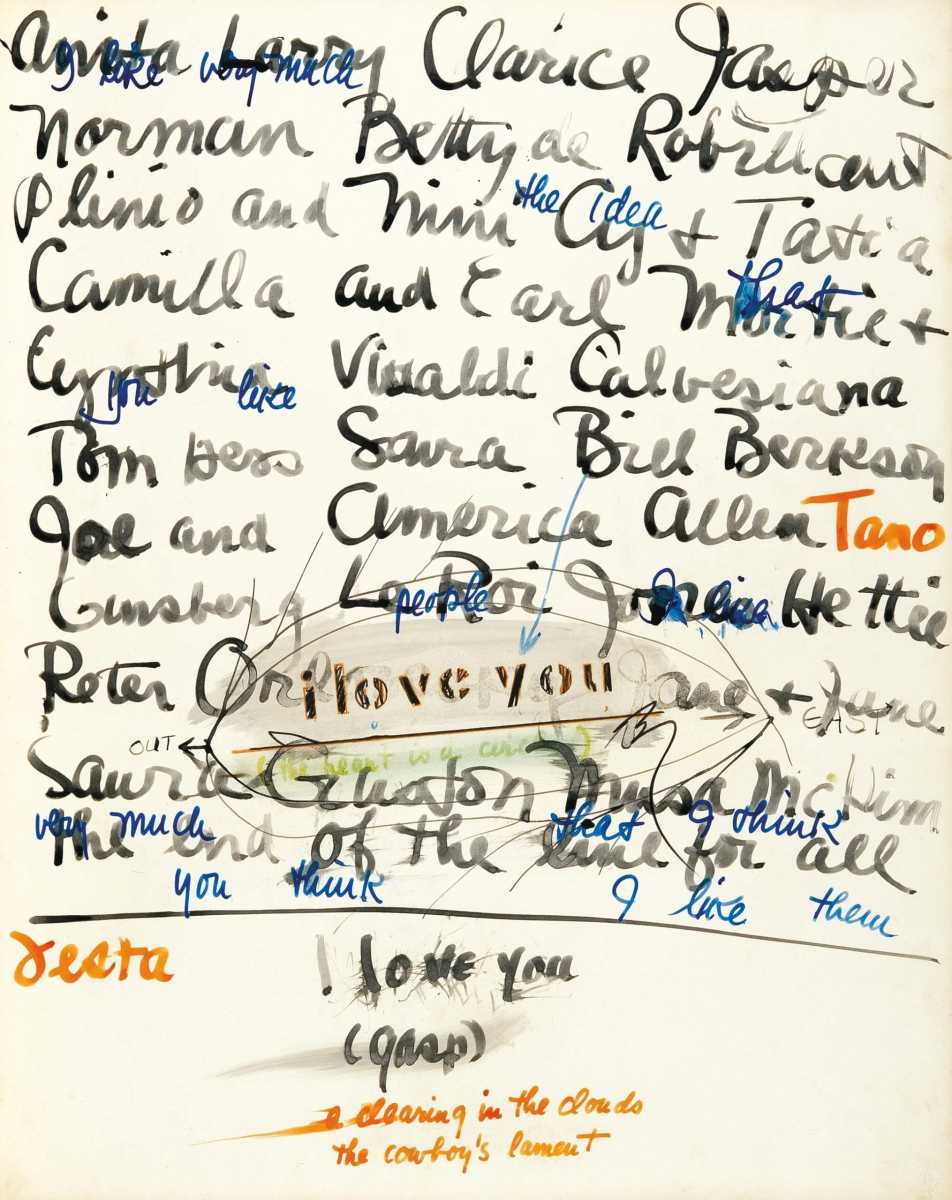 Anita Larry Clarice Jasper
I like very much
Norman Betty de Robilant
Plinio and Mimi Cy + Tatia
the idea
Camilla and Earl Mortie +
that
Vivaldi Calvesiana
you like
Tom Hess Saura Bill Berkson
Joe and America Allen Tano
Ginsberg LeRoi Hettie
people
Peter Jane + June
i love you
OUT EAST
(the heart is a
Saura Guston Musa McKim
very much that I think
the end of the line for all
you think I like them
Testa
I love you
(gasp)
a clearing in the clouds
the cowboy's lament